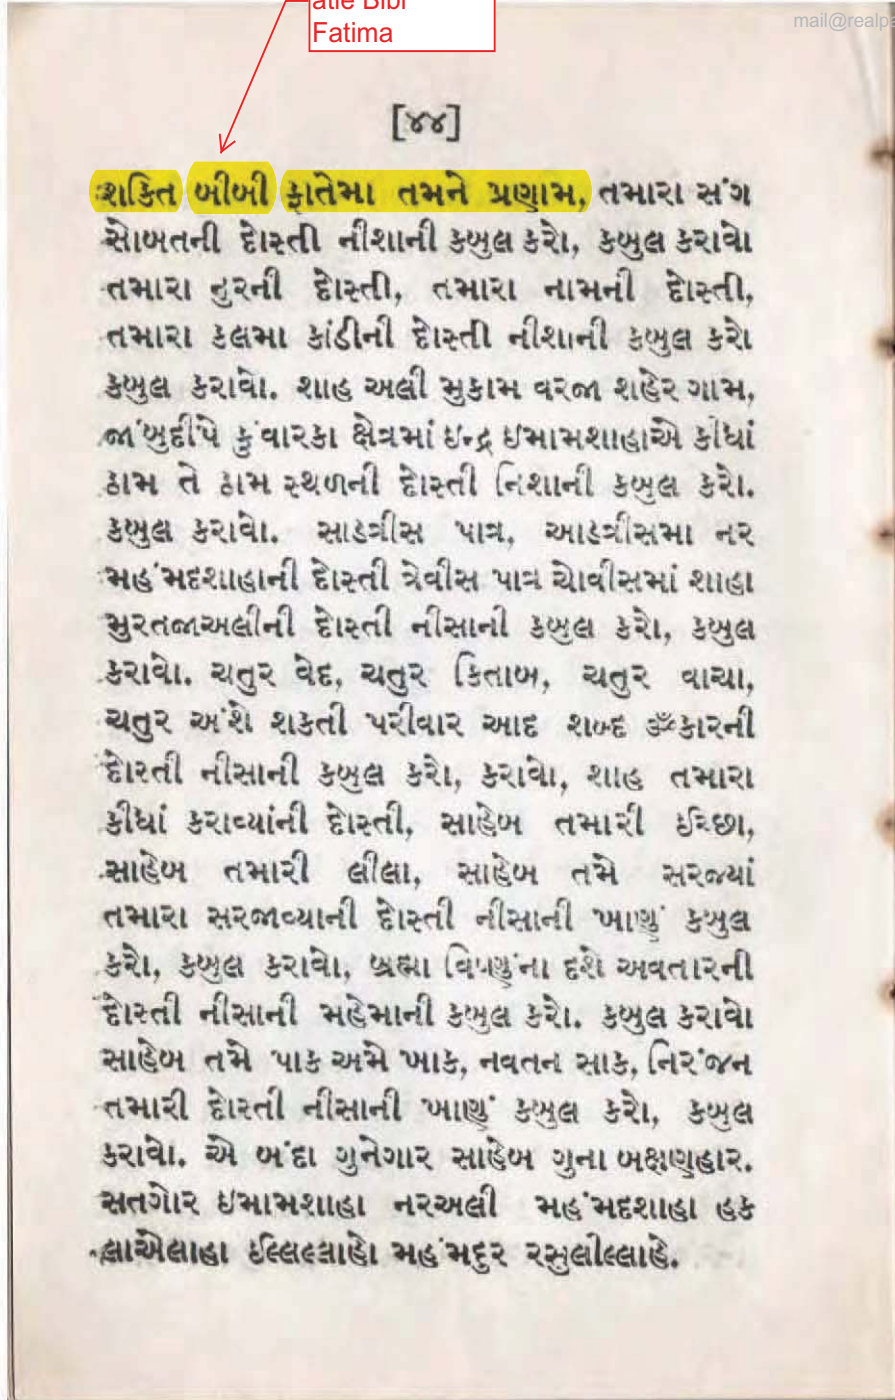 atie Bibi
Fatima
mail@realpa
[૪૪]
શક્તિ બીબી ફાતેમા તમને પ્રણામ, તમારા સંગ
સોબતની દોસ્તી નીશાની કબુલ કરો, કબુલ કરાવો
તમારા નુરની દોસ્તી, તમારા નામની દોસ્તી,
તમારા કલમા કાંઠીની દોસ્તી નીશાની કબુલ કરો
કબુલ કરાવો. શાહ અલી મુકામ વરજા શહેર ગામ,
જાંબુદીપે કુંવારકા ક્ષેત્રમાં ઇન્દ્ર ઇમામશાહાએ કીધાં
ઠામ તે ઠામ સ્થળની દોસ્તી નિશાની કબુલ કરો.
કબુલ કરાવો. સાડત્રીસ પાત્ર, આડત્રીસમા નર
મહંમદશાહાની દોસ્તી ત્રેવીસ પાત્ર ચોવીસમાં શાહા
મુરતજાઅલીની દોસ્તી નીસાની કબુલ કરો, કબુલ
કરાવો. ચતુર વેદ, ચતુર કિતાબ, ચતુર વાચા,
ચતુર અંશે શકતી પરીવાર આદ શબ્દ ૐકારની
દોસ્તી નીસાની કબુલ કરો, કરાવો, શાહ તમારા
કીધાં કરાવ્યાંની દોસ્તી, સાહેબ તમારી ઈચ્છા,
સાહેબ તમારી લીલા, સાહેબ તમે સરજ્યાં
તમારા સરજાવ્યાની દોસ્તી નીસાની ખાણું કબુલ
કરો, કબુલ કરાવો, બ્રહ્મા વિષ્ણુંના દશે અવતારની
દોસ્તી નીસાની મહેમાની કબુલ કરો. કબુલ કરાવો
સાહેબ તમે પાક અમે ખાક, નવતન સાક, નિરંજન
તમારી દોસ્તી નીસાની ખાણું કબુલ કરો, કબુલ
કરાવો. એ બંદા ગુનેગાર સાહેબ ગુના બક્ષણહાર.
સતગોર ઇમામશાહા નરઅલી મહંમદશાહા હક
લાએલાહા ઈલ્લિલ્લાહો મહંમદુર રસુલીલ્લાહે.